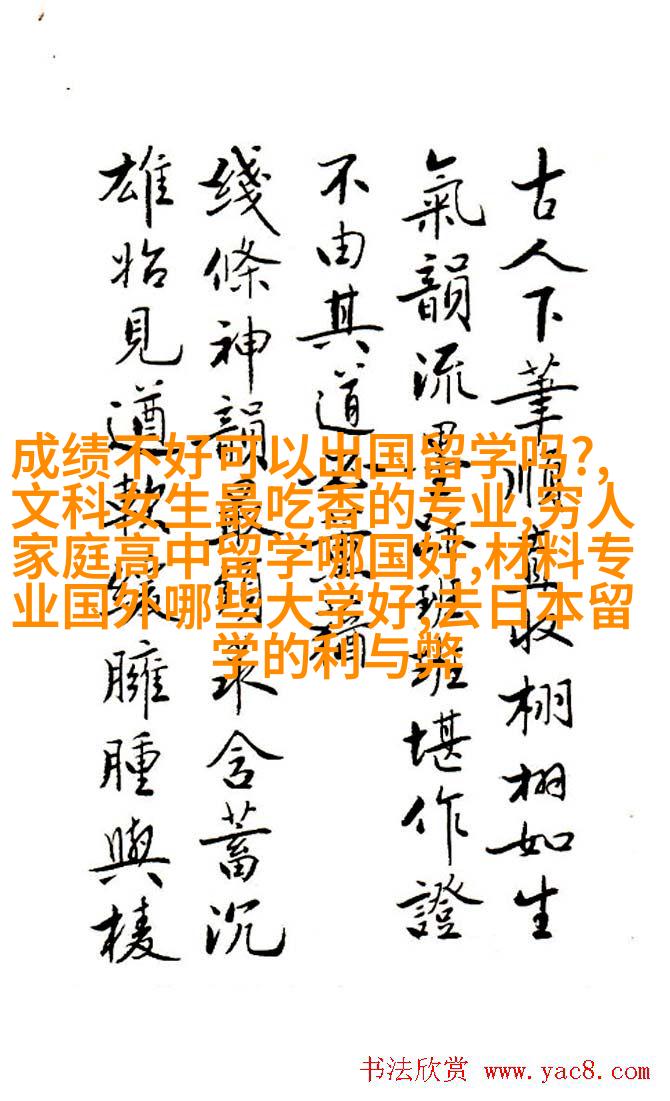 古人下筆順收栩栩如生
氣韻流墨跡斑斑堪作證
不由其道
綫條神韻最含蓄沉
雄始見遒軟臃腫與棱
成绩不好可以出国留学吗?,
文科女生最吃香的专业,穷人
家庭高中留学哪国好,材料专
业国外哪些大学好,去日本留
学的利与弊
书法欣赏 www.yac8.com